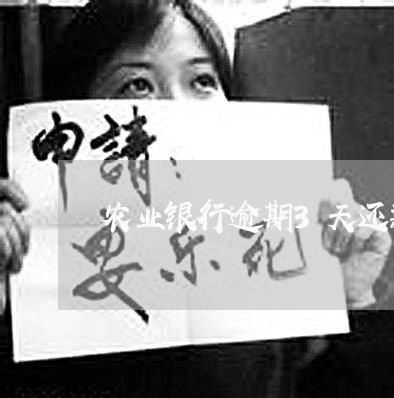 申請：
农业银行逾期3 天还
安乐死